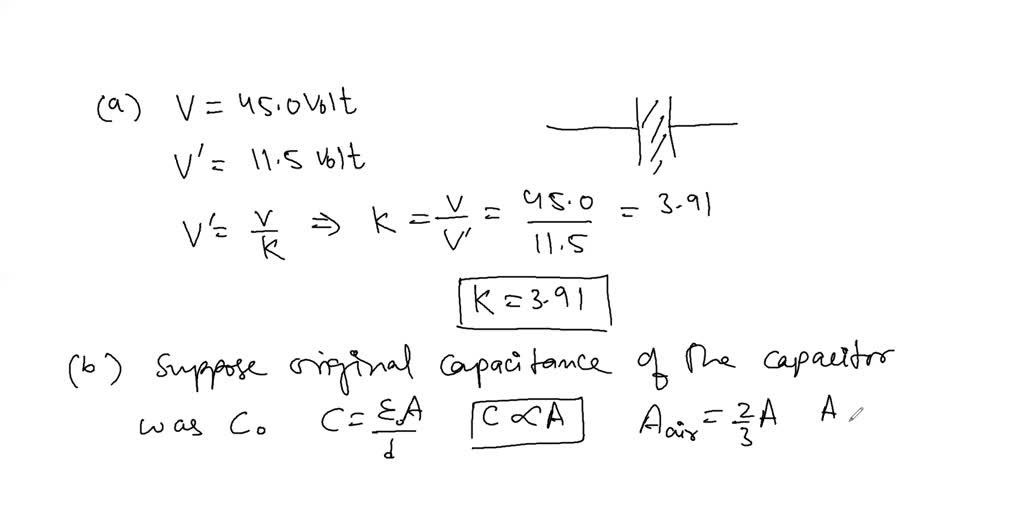 (a) V = 45.0 Volt
V' = 11.5 Volt
V' = V/K ⇒ K = V/V' = 45.0/11.5 = 3.91
K = 3.91
(b) Suppose original capacitance of the capacitor
was C₀ C = ε₀A/d C ∝ A A air = 2/3 A A